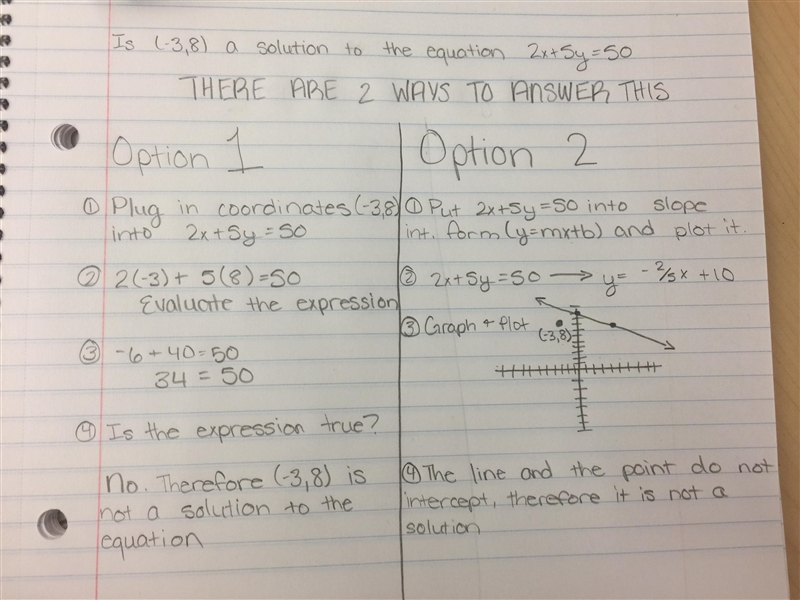 Is (-3,8) a solution to the equation 2x+5y=50
THERE ARE 2 WAYS TO ANSWER THIS
Option 1
① Plug in coordinates (-3,8)
into 2x+5y=50
② 2(-3)+ 5(8)=50
Evaluate the expression
③ -6+40=50
34 = 50
④ Is the expression true?
No. Therefore (-3,8) is
not a solution to the
equation
Option 2
① Put 2x+5y=50 into slope
int. form (y=mx+b) and plot it.
② 2x+5y=50 → y= -2/5x +10
③ Graph + Plot
(-3,8)
④ The line and the point do not
intercept, therefore it is not a
solution